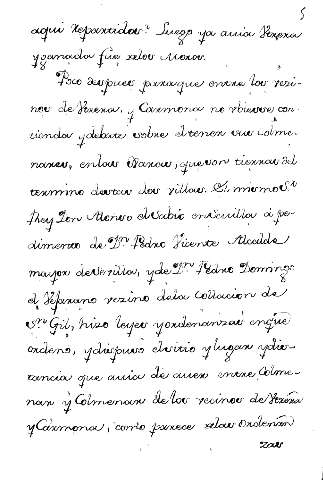 5
aqui repartidos. Luego ya auia Utrera
y ganada fue de los Moros.
Poco despues para que entre los vezi-
nos de Utrera, y Carmona no vbiesse con-
tienda y debate sobre el tener sus colme-
nares, en los Baxos, que son tierras del
termino destas dos villas. El mismo Sr.
Rey Don Alonso el Sabio en Seuilla â pe-
dimento de Dn. Pedro Vicente Alcalde
mayor de Seuilla, y de Dn. Pedro Domingo
el vezino de la Collacion de
Sn. Gil, hizo leyes y ordenanzas en que
ordeno, y dispuso el sitio y lugar y dis-
tancia que auia de auer entre Colme-
nar y Colmenar de los vecinos de Utrera
y Carmona, como parece de las Ordenan
zas